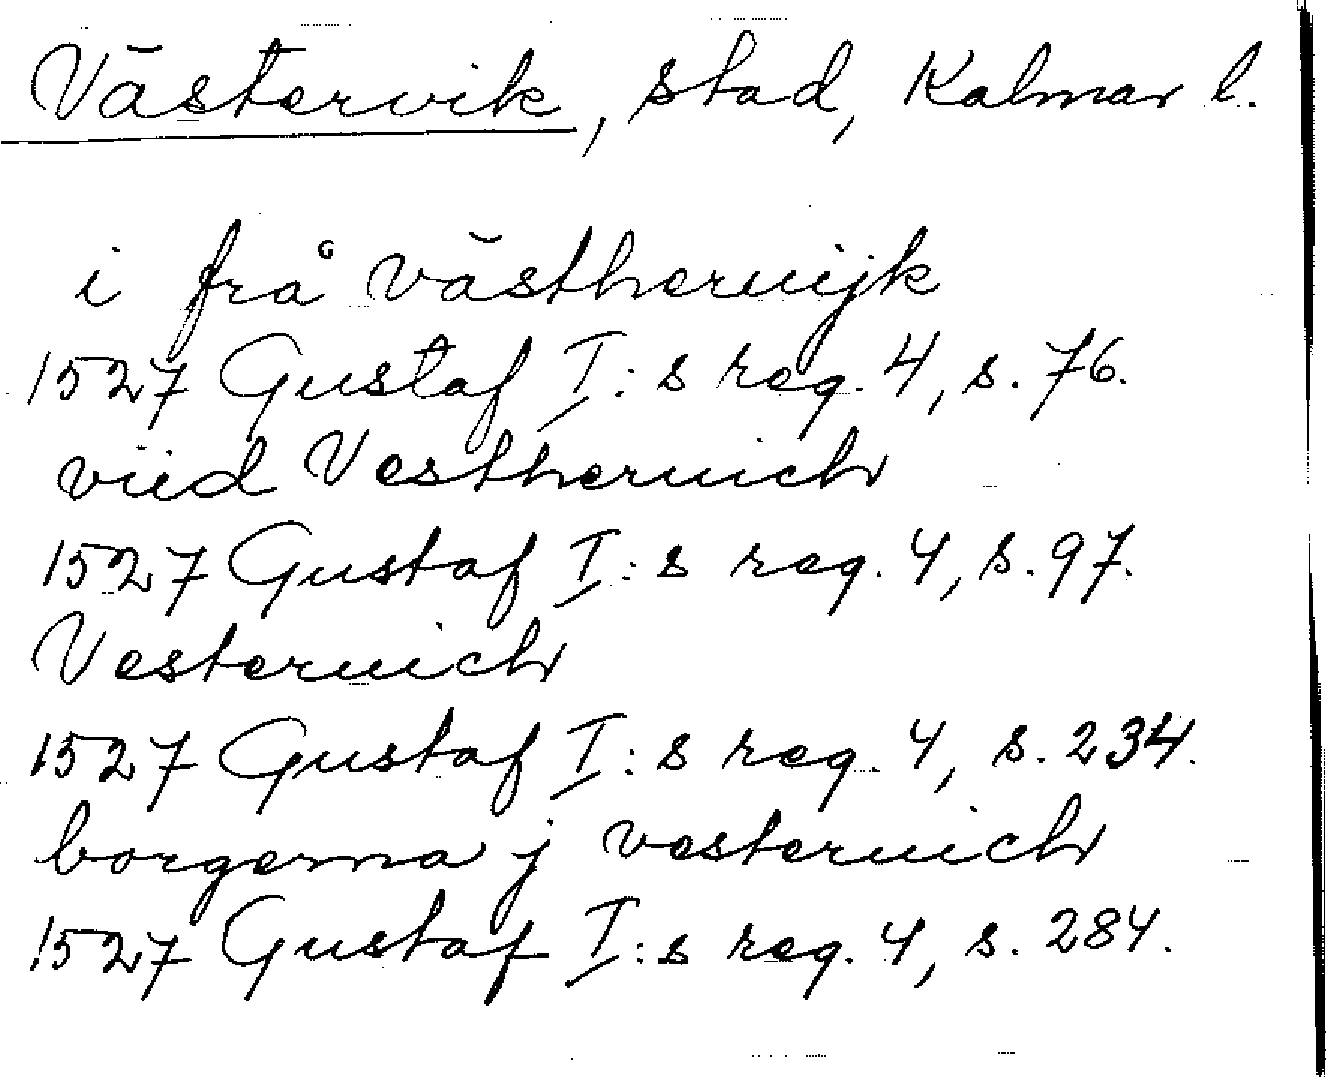 Västervik, stad, Kalmar l.
i frå västheruijk
1527 Gustaf I:s reg. 4, s. 76.
viid Vestheruich
1527 Gustaf I:s reg. 4, s. 97.
Vesteruich
1527 Gustaf I:s reg. 4, s. 234.
borgerna j vesteruich
1527 Gustaf I:s reg. 4, s. 284.